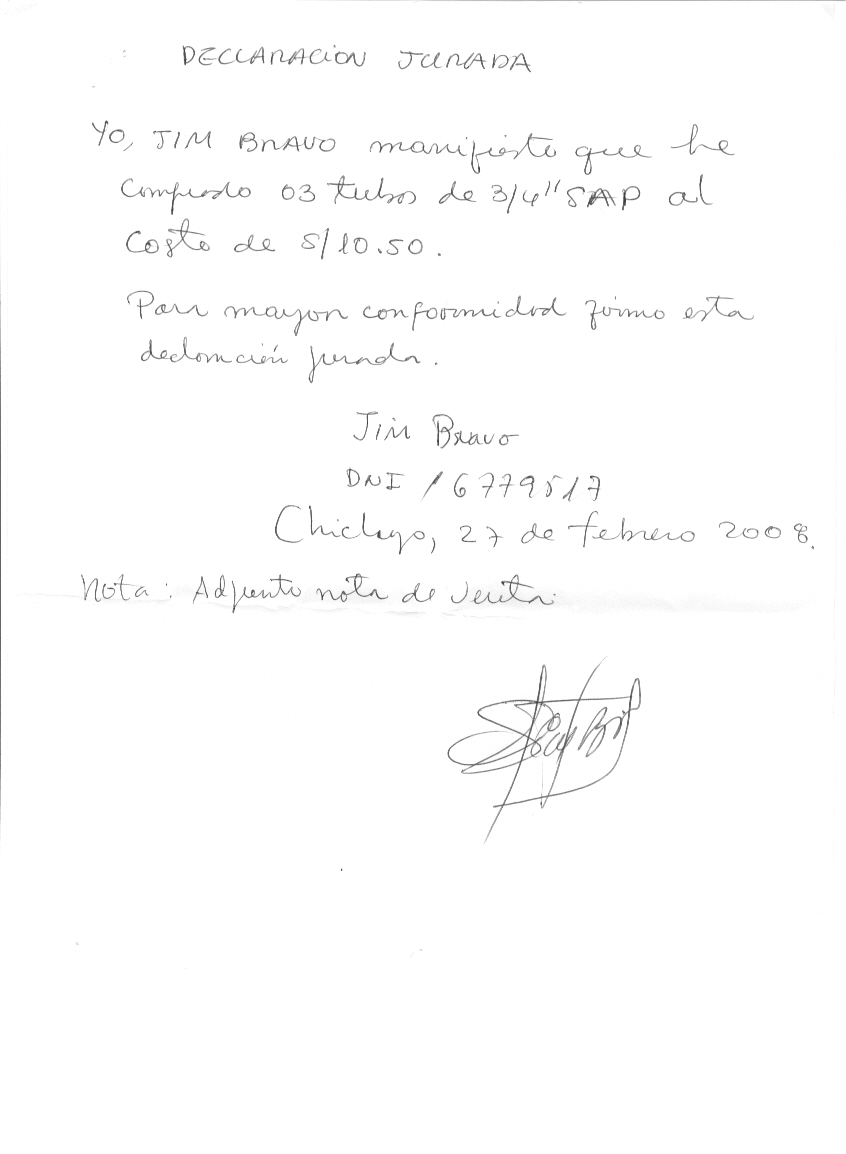 DECLARACION JURADA
Yo, JIM BRAVO manifiesto que he
comprado 03 tubos de 3/4" SAP al
costo de S/10.50.
Para mayor conformidad firmo esta
declaración jurada.
Jim Bravo
DNI 16779517
Chiclayo, 27 de febrero 2008.
Nota: Adjunto nota de venta.